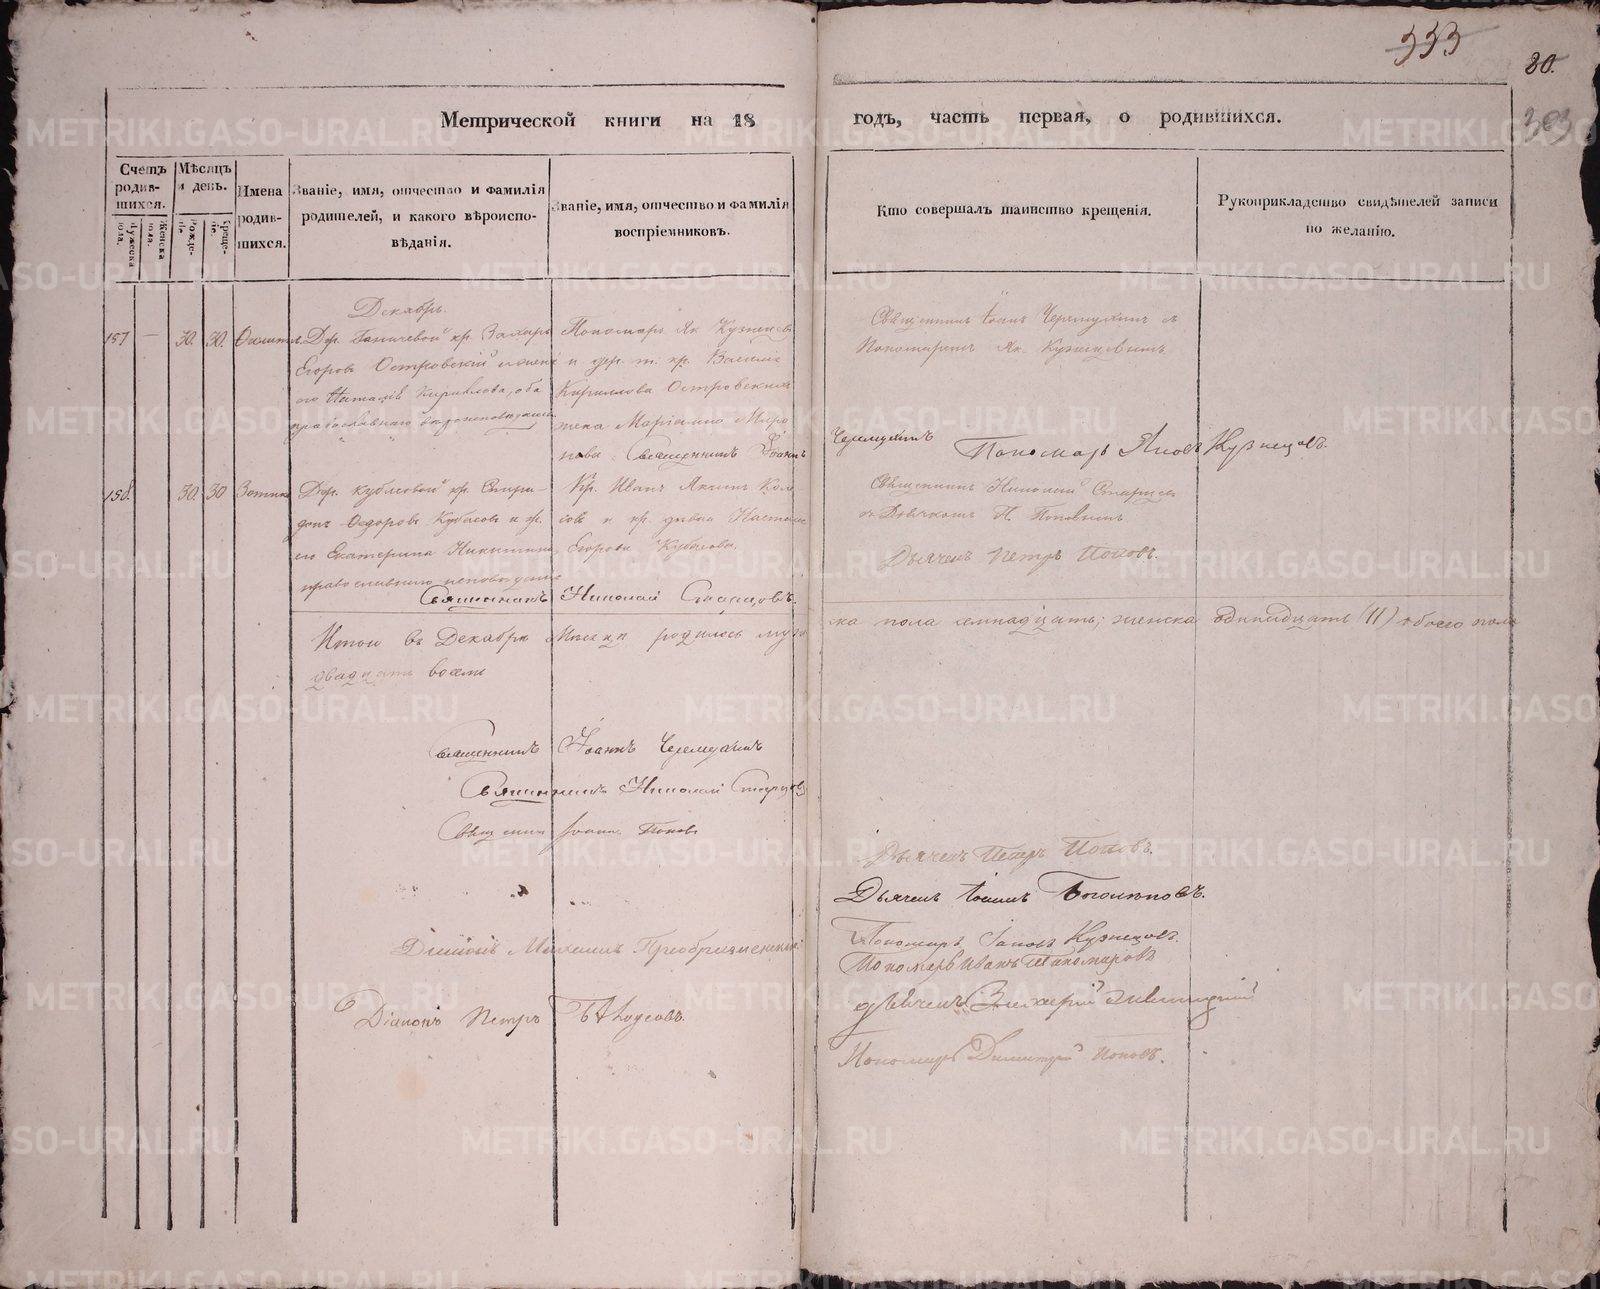 333
80.
303
Метрической книги на 18 годъ, часть первая, о родившихся.
Счетъ родив-шихся.
Мужеска пола.
Женска пола.
Мѣсяцъ и день.
Рожде-нія.
Креще-нія.
Имена родив-шихся.
Званіе, имя, отчество и фамилія родителей, и какого вѣроиспо-вѣданія.
Званіе, имя, отчество и фамилія воспріемниковъ.
Кто совершалъ таинство крещенія.
Рукоприкладство свидѣтелей записи по желанію.
Декабрь.
157 — 30. 30.
Дер. кр. Захаръ
Егоровъ Островскій и жена
его Наталія Кириллова, оба
православнаго вѣроисповѣданія
Пономарь Як. Кузнецовъ
и дер. т. кр. Василія
Кириллова Островскихъ
жена Маріамна Миро
нова Священникъ Іоаннъ
Священникъ Іоаннъ Черемухинъ съ
Пономаремъ Як. Кузнецовымъ
Черемухинъ Пономарь Яковъ Кузнецовъ.
158. 30. 30
Дер. Кубасовой кр. Спири-
донъ Ѳедоровъ Кубасовъ и ж.
его Екатерина Никитина
православнаго исповѣданія
Кр. Иванъ
и кр. дѣвка
Егорова Кубасова.
Священникъ Николай Старцовъ
съ Дьячкомъ П. Поповымъ
Дьячекъ Петръ Поповъ.
Священникъ Николай Старцовъ.
Итого въ Декабрѣ мѣсяцѣ родилось муже
ска пола семнадцать; женска одинадцать (11) обоего пола
двадцать восемь
Священникъ Іоаннъ Черемухинъ
Священникъ Николай Старцовъ
Священникъ Іоаннъ Поповъ
Діаконъ Михаилъ Преображенскій
Діаконъ Петръ
Дьячекъ Петръ Поповъ.
Дьячекъ Іоаннъ Боголѣповъ.
Пономарь Іаковъ Кузнецовъ.
Пономарь Иванъ Пономаревъ
дьячекъ
Пономарь Димитрій Поповъ.
METRIKI.GASO-URAL.RU